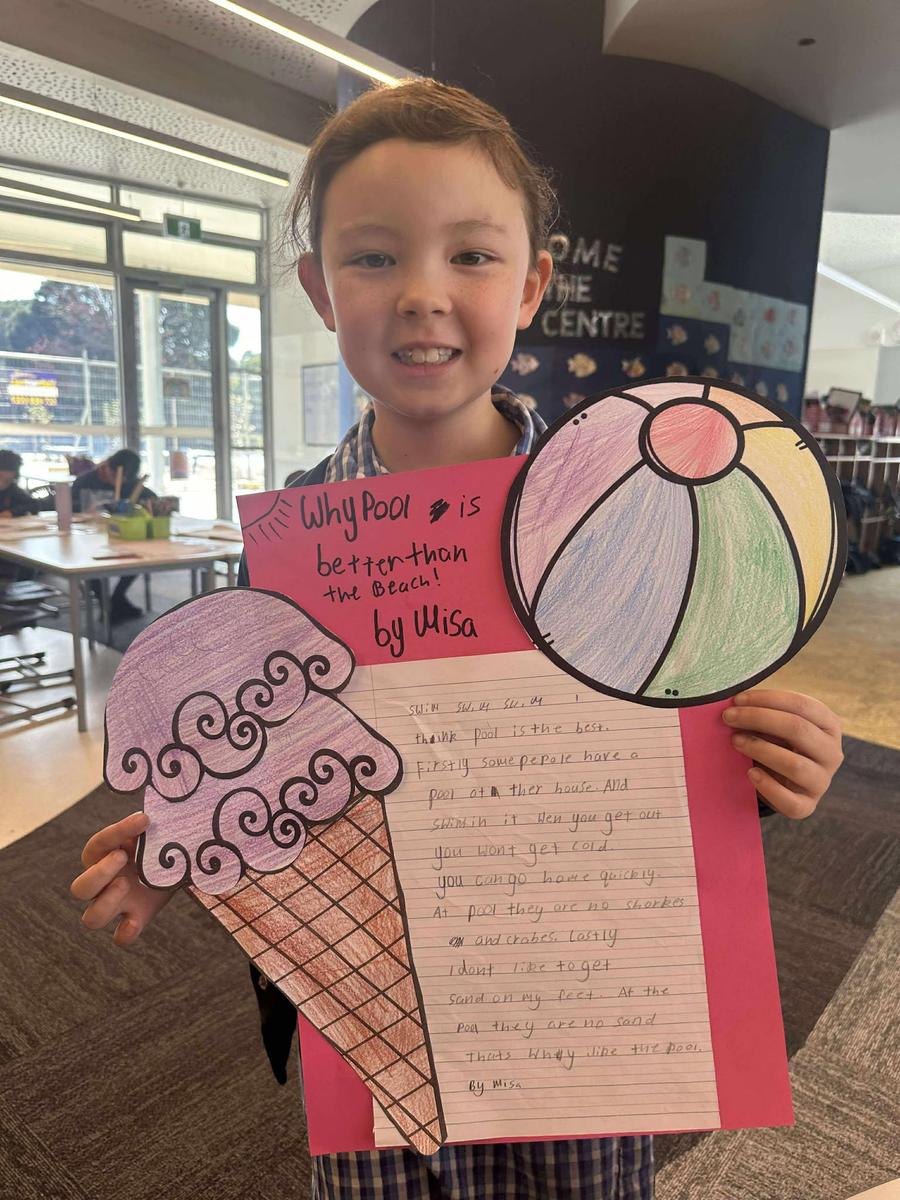 OME
THE
CENTRE
Why Pool is
better than
the Beach!
by Misa
swim swim swim I
think pool is the best.
Firstly some pepole have a
pool at ther house. And
swim in it wen you get out
you wont get cold.
you can go home quickly.
At pool they are no sharkes
and crabes. Lastly
I dont like to get
sand on my feet. At the
pool they are no sand
thats why like the pool.
By Misa